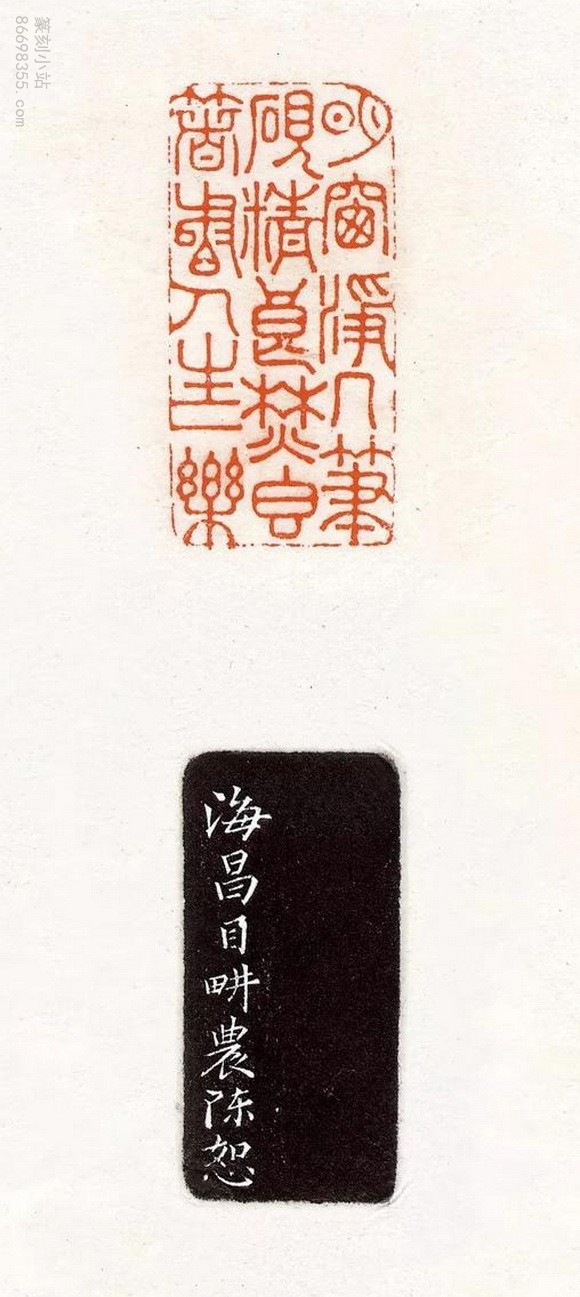 明窗淨几筆
硯精良焚香
著書人生樂
海昌目畊農陈恕
篆刻小站
86698355.com